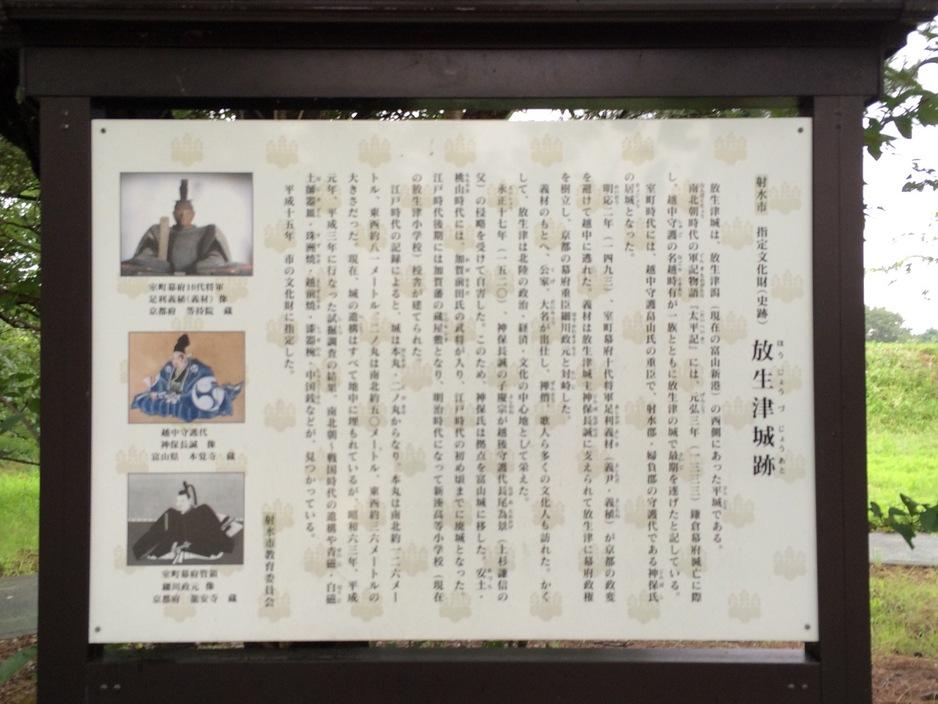 射水市　指定文化財(史跡)　放生津城跡
ほうじょうづじょうあと
放生津城は、放生津潟(現在の富山新港)の西側にあった平城である。
南北朝時代の軍記物語『太平記』には、元弘三年(一三三三)鎌倉幕府滅亡に際
し、越中守護の名越時有が一族とともに放生津の城で最期を遂げたと記している。
室町時代には、越中守護畠山氏の重臣で、射水郡・婦負郡の守護代である神保氏
の居城となった。
明応二年(一四九三)、室町幕府十代将軍足利義材(義尹・義稙)が京都の政変
を避けて越中に逃れた。義材は放生津城主神保長誠に支えられて放生津に幕府政権
を樹立し、京都の幕府重臣細川政元と対峙した。
義材のもとへ、公家、大名が出仕し、禅僧、歌人ら多くの文化人も訪れた。かく
して、放生津は北陸の政治・経済・文化の中心地として栄えた。
永正十七年(一五二〇)、神保長誠の子慶宗が越後守護代長尾為景(上杉謙信の
父)の侵略を受けて自害した。このため、神保氏は拠点を富山城に移した。安土・
桃山時代には、加賀前田氏の武将が入り、江戸時代の初め頃までに廃城となった。
江戸時代後期には加賀藩の蔵屋敷となり、明治時代になって新湊高等小学校(現在
の放生津小学校)校舎が建てられた。
江戸時代の記録によると、城は本丸、二ノ丸からなり、本丸は南北約一二六メー
トル、東西約八一メートル、二ノ丸は南北約五〇メートル、東西約三六メートルの
大きさだった。現在、城の遺構はすべて地中に埋もれているが、昭和六三年、平成
元年、平成三年に行なった試掘調査の結果、南北朝～戦国時代の遺構や青磁・白磁
土師器皿・珠洲焼・越前焼・漆器椀・中国銭などが、見つかっている。
平成十五年、市の文化財に指定した。
射水市教育委員会
室町幕府10代将軍
足利義稙(義材)　像
京都府　等持院　蔵
越中守護代
神保長誠　像
富山県　本覚寺　蔵
室町幕府管領
細川政元　像
京都府　龍安寺　蔵